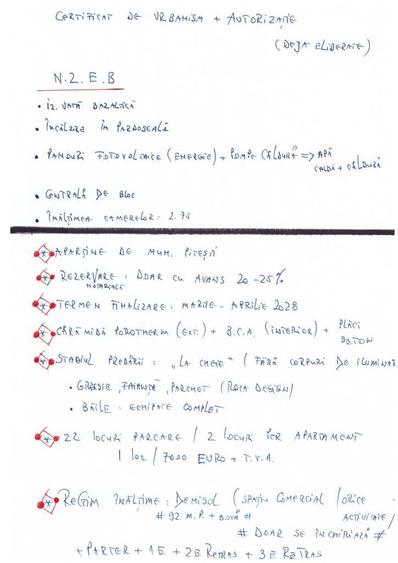 CERTIFICAT DE URBANISM + AUTORIZAȚIE
(DEJA ELIBERATE)
N.Z.E.B
• IZ. VATĂ BAZALTICĂ
• ÎNCĂLZIRE ÎN PARDOSEALĂ
• PANOURI FOTOVOLTAICE (ENERGIE) + POMPE CĂLDURĂ => APĂ
CALDĂ + CĂLDURĂ
• CENTRALĂ DE BLOC
• ÎNĂLȚIMEA CAMERELOR: 2.75
* APARȚINE DE MUN. PITEȘTI
* REZERVARE: DOAR CU AVANS 20-25%
NOTARIALĂ
* TERMEN FINALIZARE: MARTIE - APRILIE 2028
* CĂRĂMIDĂ POROTHERM (EXT.) + B.C.A. (INTERIOR) + PLĂCI
BETON
* STADIUL PREDĂRII: "LA CHEIE" / FĂRĂ CORPURI DE ILUMINAT
• GRESIE, FAIANȚĂ, PARCHET (ROCA DESIGN)
• BĂILE: ECHIPATE COMPLET
* 22 LOCURI PARCARE / 2 LOCURI PER APARTAMENT
1 LOC / 7000 EURO + T.V.A.
* REGIM ÎNĂLȚIME: DEMISOL (SPAȚIU COMERCIAL / ORICE
# 92 M.P. + #
ACTIVITATE/
# DOAR SE ÎNCHIRIAZĂ #
+ PARTER + 1E + 2E RETRAS + 3E RETRAS